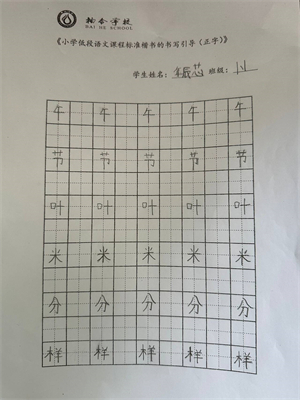 《小学低段语文课程标准楷书的书写引导（正字）》
学生姓名： 班级：
午 午 午 午 午
节 节 节 节 节
叶 叶 叶 叶 叶
米 米 米 米 米
分 分 分 分 分
样 样 样 样 样